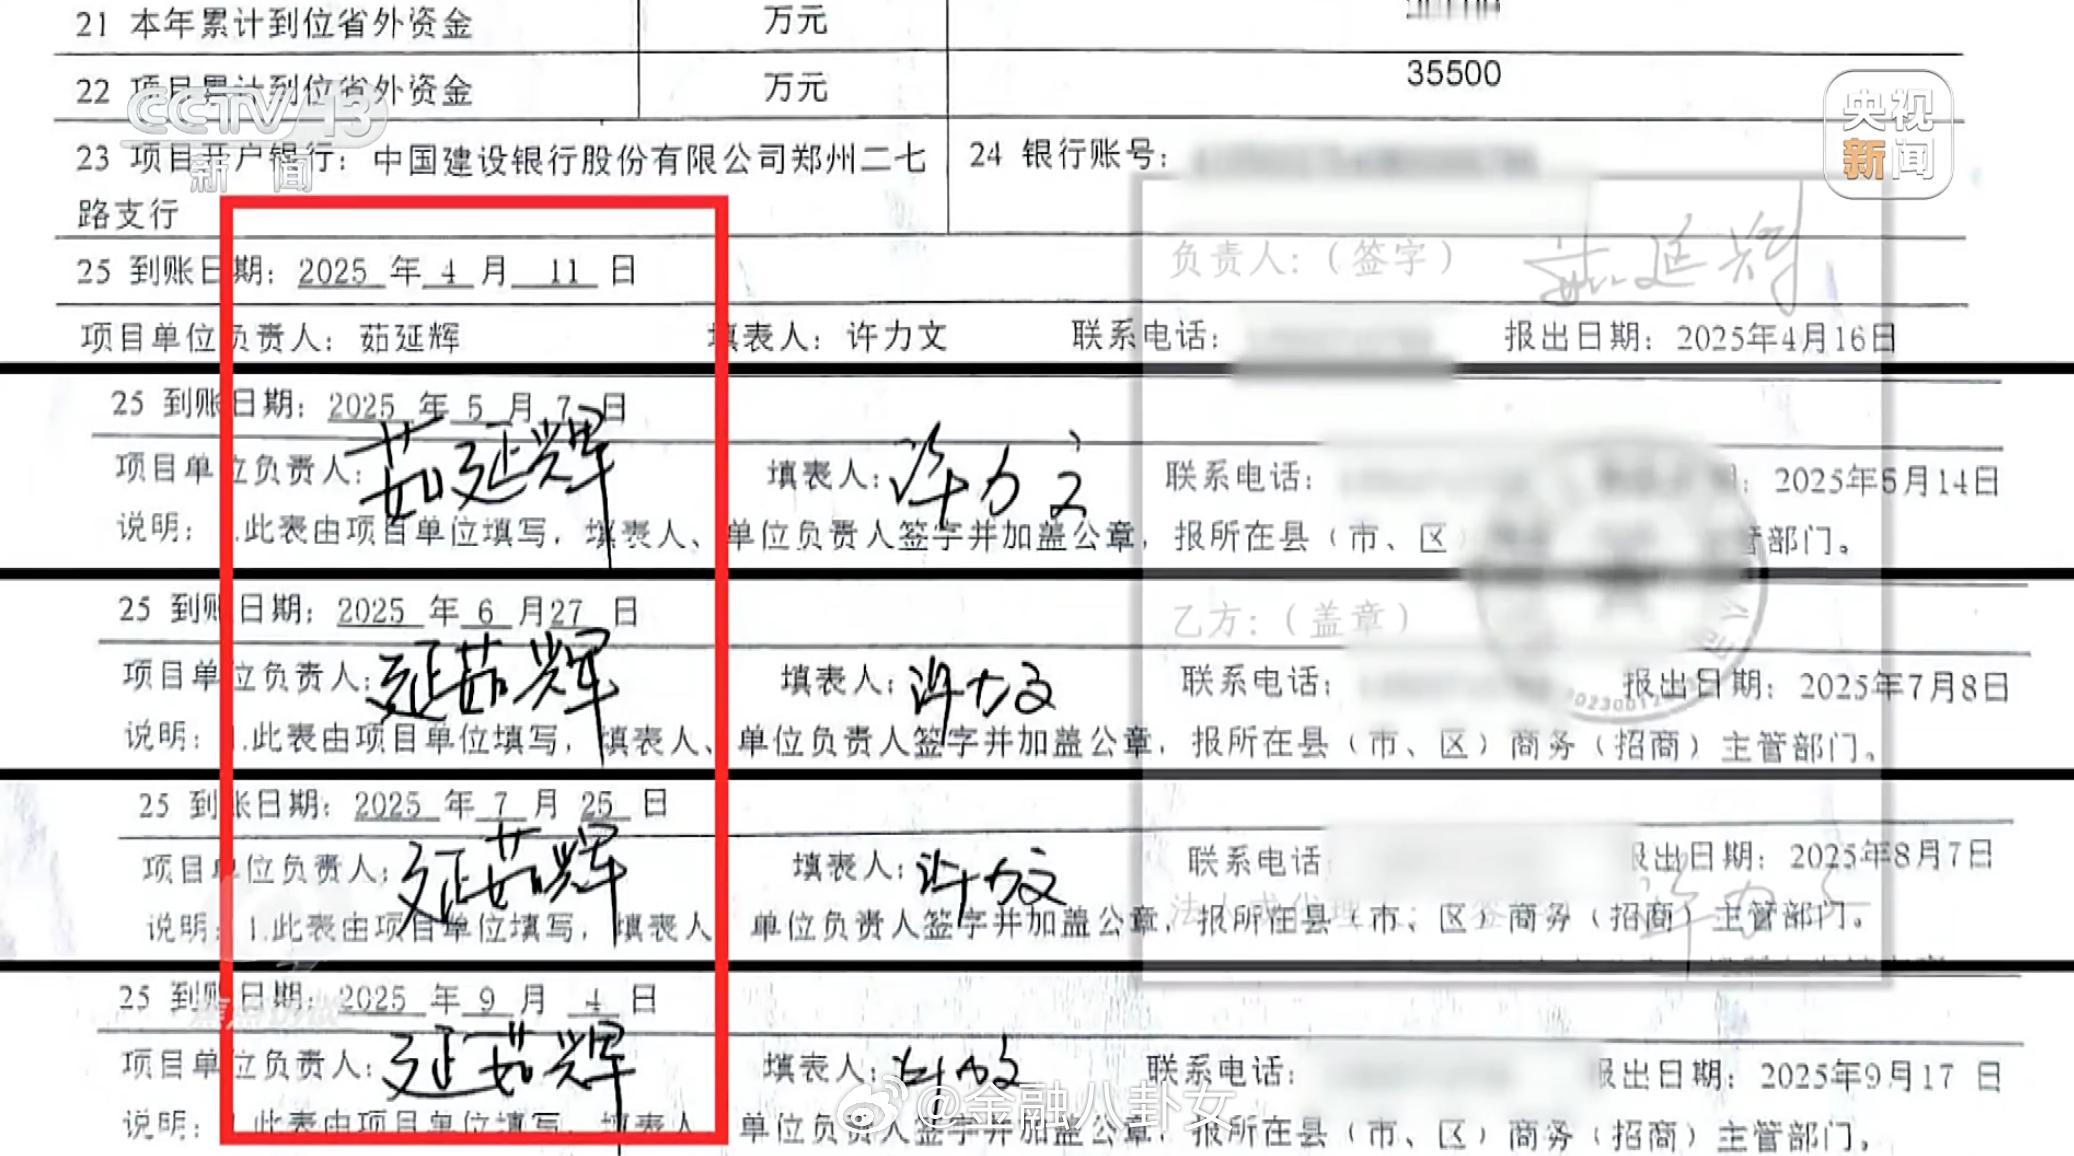 21 本年累计到位省外资金 万元
22 项目累计到位省外资金 万元 35500
CCTV 13
新闻
央视
新闻
23 项目开户银行：中国建设银行股份有限公司郑州二七
路支行
24 银行账号：
负责人：（签字） 茹延辉
25 到账日期：2025 年 4 月 11 日
项目单位负责人：茹延辉 填表人：许力文 联系电话： 报出日期：2025年4月16日
25 到账日期：2025 年 5 月 7 日
项目单位负责人：茹延辉 填表人：许力文 联系电话： 2025年5月14日
说明：1.此表由项目单位填写，填表人、单位负责人签字并加盖公章，报所在县（市、区） 管部门。
25 到账日期：2025 年 6 月 27 日
乙方：（盖章）
项目单位负责人：延茹辉 填表人：许力文 联系电话： 报出日期：2025年7月8日
说明：1.此表由项目单位填写，填表人、单位负责人签字并加盖公章，报所在县（市、区）商务（招商）主管部门。
25 到账日期：2025 年 7 月 25 日
项目单位负责人：延茹辉 填表人：许力文 联系电话 报出日期：2025年8月7日
说明：1.此表由项目单位填写，填表人 单位负责人签字并加盖公章，报所在县（市、区）商务（招商）主管部门。
许力文
25 到账日期：2025 年 9 月 4 日
项目单位负责人：延茹辉 填表人：许力文 联系电话： 报出日期：2025年9月17日
说明：1.此表由项目单位填写，填表人、单位负责人签字并加盖公章，报所在县（市、区）商务（招商）主管部门。
@金融八卦女